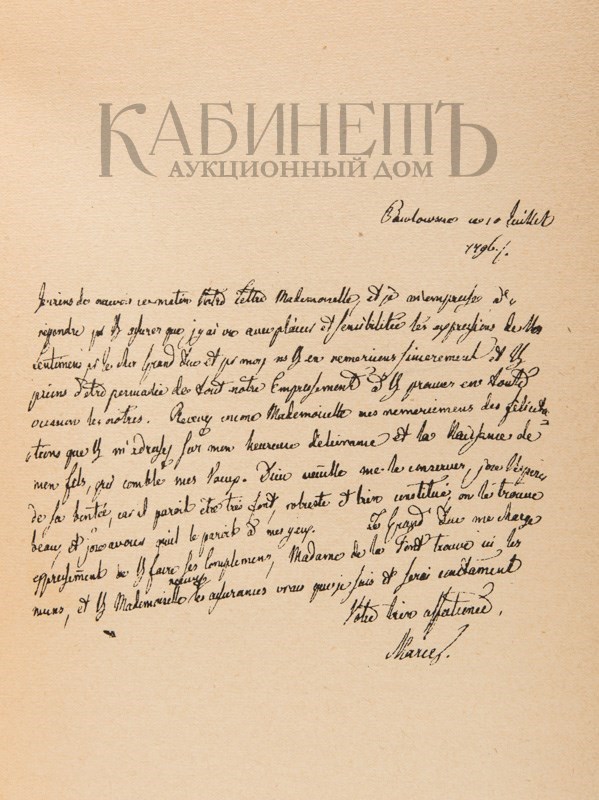 КАБИНЕТЪ
АУКЦИОННЫЙ ДОМ
ce 10 Juillet
1796
Je viens de cematin Votre Lettre Mademoiselle, et je m'empresse de
répondre que j'y ai vu avec plaisir et sensibilitée les expressions de Vos
sentimens le cher Grand Duc et moy en remercions sincerement et
prions d'etre persuadée de tout notre Empressement à prouver en toute
occasion les notres. Recevez encore Mademoiselle mes remerciemens des félicita-
tions que m'adressez sur mon heureuse délivrance et la Naissance de
mon fils, qui comble mes Vœux. Dieu veuille me le conserver, j'en
de sa bonté, car il paroit être très fort, robuste et bien constitué, on le trouve
beau, et j'ose avouer qu'il le paroit à mes yeux. Le Grand Duc me charge
expressement de faire ses Complimens, Madame de la Font trouve ici les
miens, et Mademoiselle recevez les assurances vraies que je suis et serai constament
Votre bien affectionée,
Marie